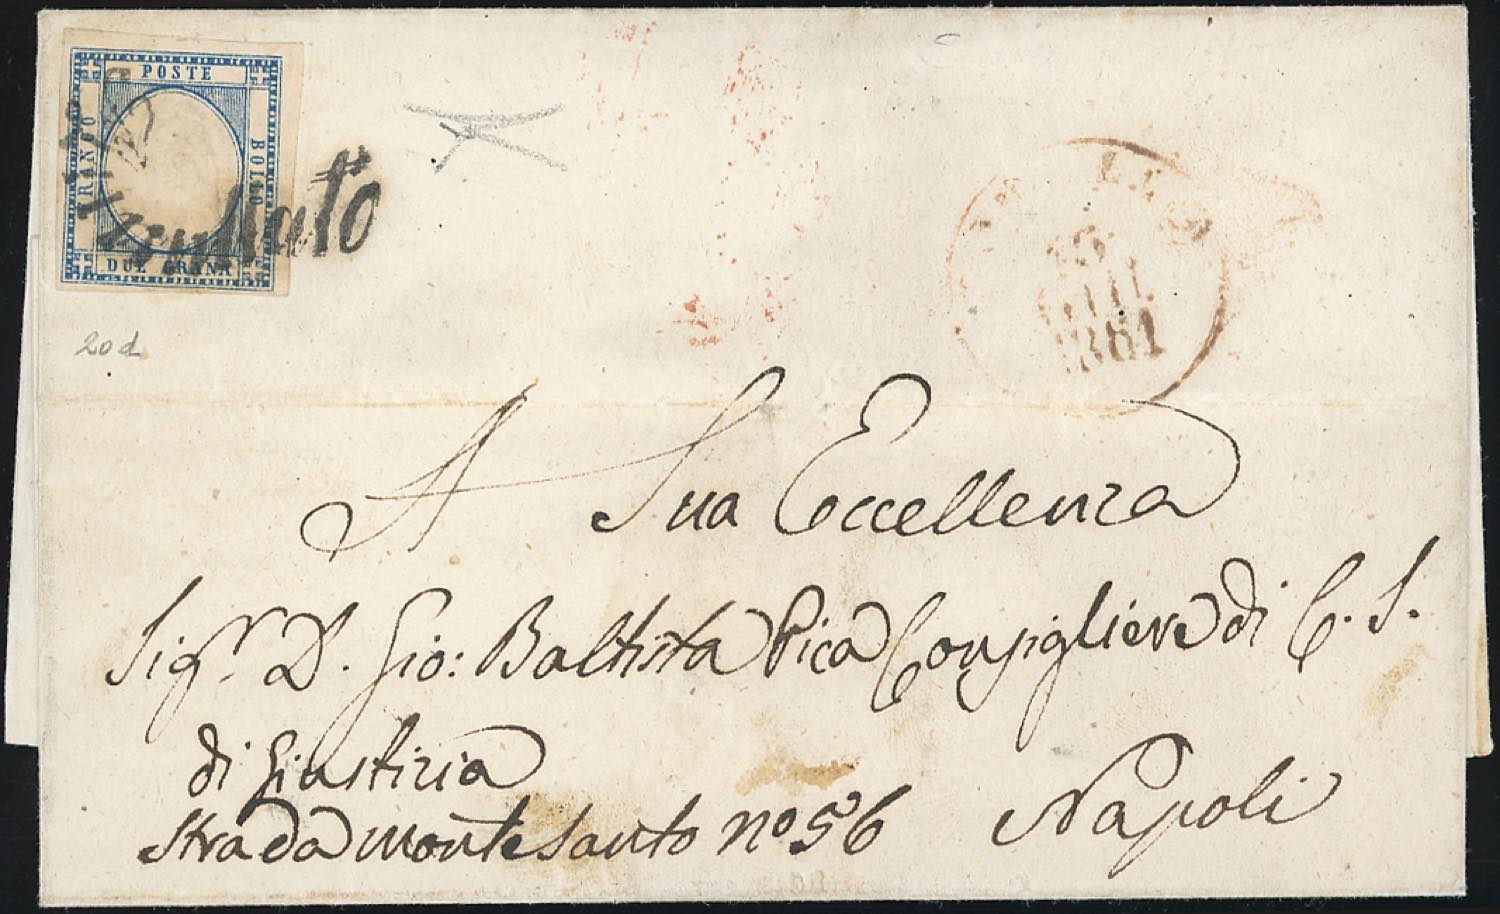 POSTE
FRANCO
BOLLO
DUE GRANA
Annullato
20 d
1861
A Sua Eccellenza
Sigr. D. Gio: Battista Pica Consigliere di C. S.
di Giustizia
Strada Monte Santo no 56 Napoli